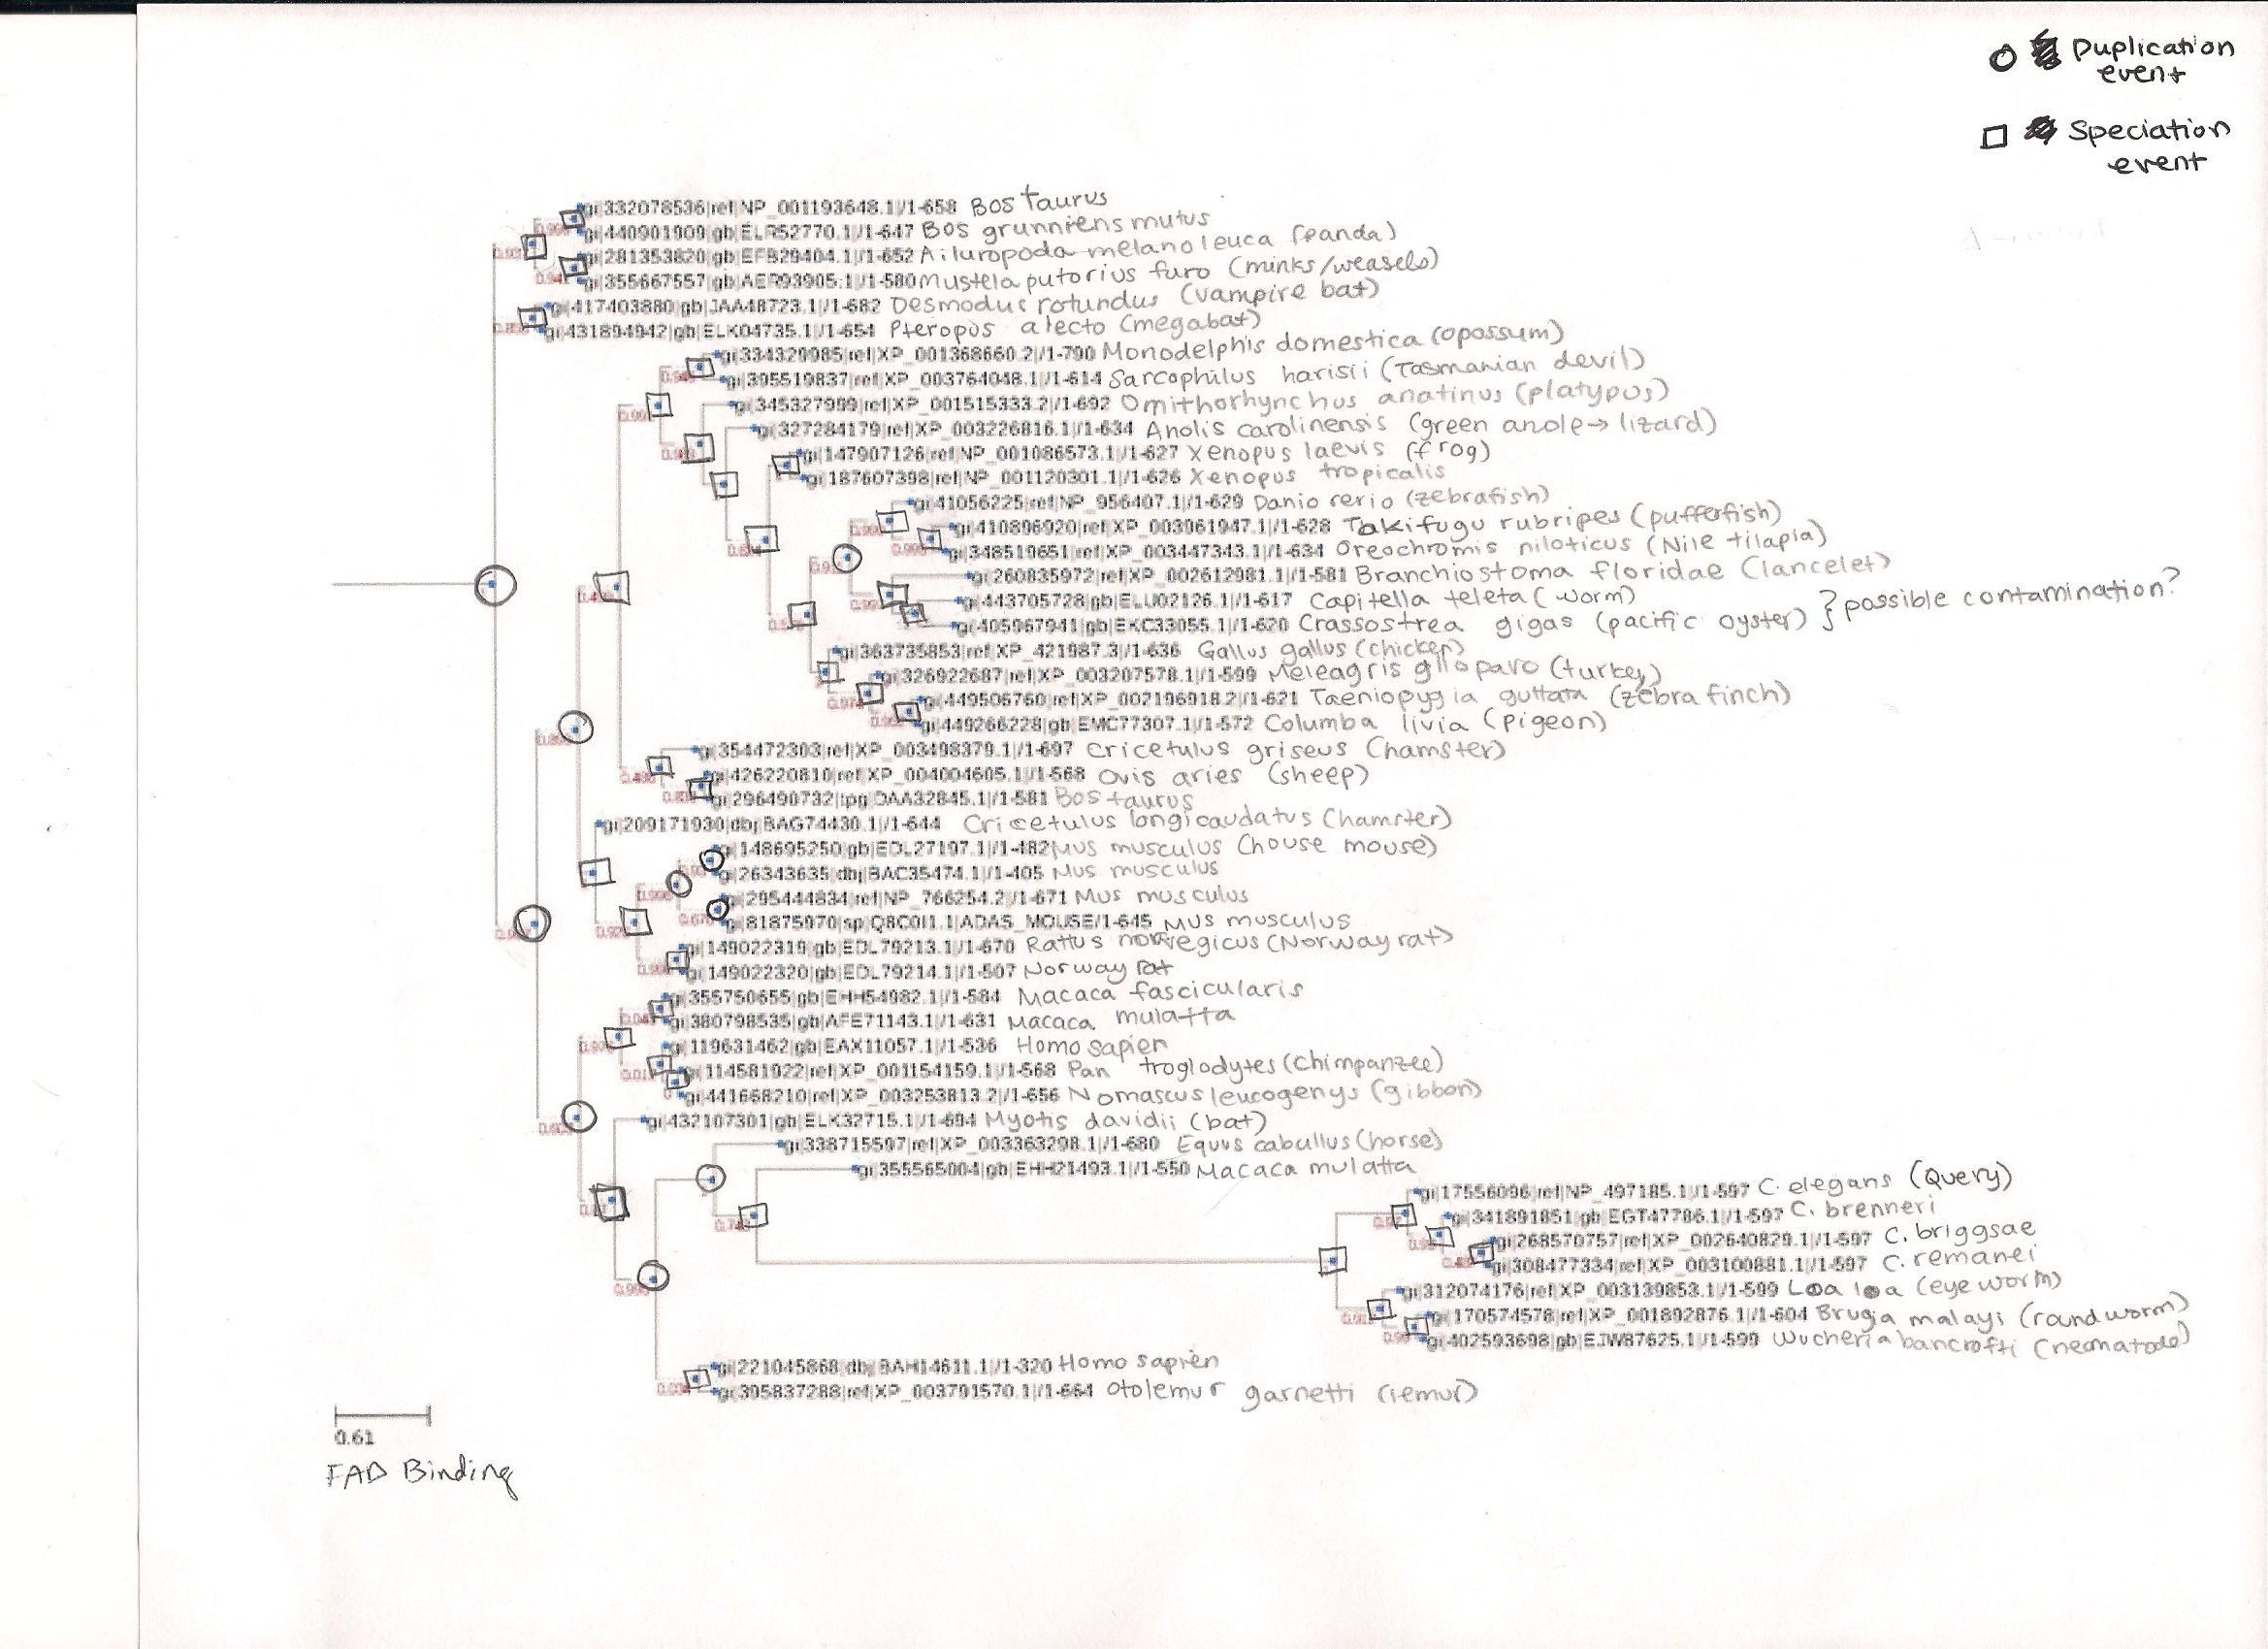 Duplication
event
Speciation
event
gi|332078536|ref|NP_001193648.1|/1-658 Bos taurus
gi|440901909|gb|ELR52770.1|/1-647 Bos grunniens mutus
gi|281353820|gb|EFB29404.1|/1-652 Ailuropoda melanoleuca (panda)
gi|355667557|gb|AER93905.1|/1-580 Mustela putorius furo (minks/weasels)
gi|417403880|gb|JAA48723.1|/1-682 Desmodus rotundus (vampire bat)
gi|431894942|gb|ELK04735.1|/1-654 Pteropus alecto (megabat)
gi|334329985|ref|XP_001368660.2|/1-790 Monodelphis domestica (opossum)
gi|395519837|ref|XP_003764048.1|/1-614 Sarcophilus harisii (Tasmanian devil)
gi|345327999|ref|XP_001515333.2|/1-692 Ornithorhynchus anatinus (platypus)
gi|327284179|ref|XP_003226816.1|/1-634 Anolis carolinensis (green anole→ lizard)
gi|147907126|ref|NP_001086573.1|/1-627 Xenopus laevis (frog)
gi|187607398|ref|NP_001120301.1|/1-626 Xenopus tropicalis
gi|41056225|ref|NP_956407.1|/1-629 Danio rerio (zebrafish)
gi|410896920|ref|XP_003961947.1|/1-628 Takifugu rubripes (pufferfish)
gi|348519651|ref|XP_003447343.1|/1-634 Oreochromis niloticus (Nile tilapia)
gi|260835972|ref|XP_002612981.1|/1-581 Branchiostoma floridae (lancelet)
gi|443705728|gb|ELU02126.1|/1-617 Capitella teleta (worm)
gi|405967941|gb|EKC33055.1|/1-620 Crassostrea gigas (pacific oyster) } possible contamination?
gi|363735853|ref|XP_421987.3|/1-636 Gallus gallus (chicken)
gi|326922687|ref|XP_003207578.1|/1-599 Meleagris glloparo (turkey)
gi|449506760|ref|XP_002196918.2|/1-621 Taeniopygia guttata (zebra finch)
gi|449266228|gb|EMC77307.1|/1-572 Columba livia (pigeon)
gi|354472303|ref|XP_003498379.1|/1-697 Cricetulus griseus (hamster)
gi|426220810|ref|XP_004004605.1|/1-568 Ovis aries (sheep)
gi|296490732|tpg|DAA32845.1|/1-581 Bos taurus
gi|209171930|dbj|BAG74430.1|/1-644 Cricetulus longicaudatus (hamster)
gi|148695250|gb|EDL27197.1|/1-482 Mus musculus (house mouse)
gi|26343635|dbj|BAC35474.1|/1-405 Mus musculus
gi|295444834|ref|NP_766254.2|/1-671 Mus musculus
gi|81875970|sp|Q8C0I1.1|ADAS_MOUSE/1-645 Mus musculus
gi|149022319|gb|EDL79213.1|/1-670 Rattus norvegicus (Norway rat)
gi|149022320|gb|EDL79214.1|/1-507 Norway Rat
gi|355750655|gb|EHH54982.1|/1-584 Macaca fascicularis
gi|380798535|gb|AFE71143.1|/1-631 Macaca mulatta
gi|119631462|gb|EAX11057.1|/1-536 Homo sapien
gi|114581922|ref|XP_001154159.1|/1-568 Pan troglodytes (Chimpanzee)
gi|441668210|ref|XP_003253813.2|/1-656 Nomascus leucogenys (gibbon)
gi|432107301|gb|ELK32715.1|/1-694 Myotis davidii (bat)
gi|338715597|ref|XP_003363298.1|/1-680 Equus caballus (horse)
gi|355565004|gb|EHH21493.1|/1-550 Macaca mulatta
gi|17556096|ref|NP_497185.1|/1-597 C. elegans (Query)
gi|341891851|gb|EGT47786.1|/1-597 C. brenneri
gi|268570757|ref|XP_002640829.1|/1-597 C. briggsae
gi|308477334|ref|XP_003100881.1|/1-597 C. remanei
gi|312074176|ref|XP_003139853.1|/1-599 Loa loa (eye worm)
gi|170574578|ref|XP_001892876.1|/1-604 Brugia malayi (round worm)
gi|402593698|gb|EJW87625.1|/1-599 Wucheria bancrofti (nematode)
gi|221045868|dbj|BAH14611.1|/1-320 Homo sapien
gi|395837288|ref|XP_003791570.1|/1-664 Otolemur garnetti (lemur)
0.61
FAD Binding